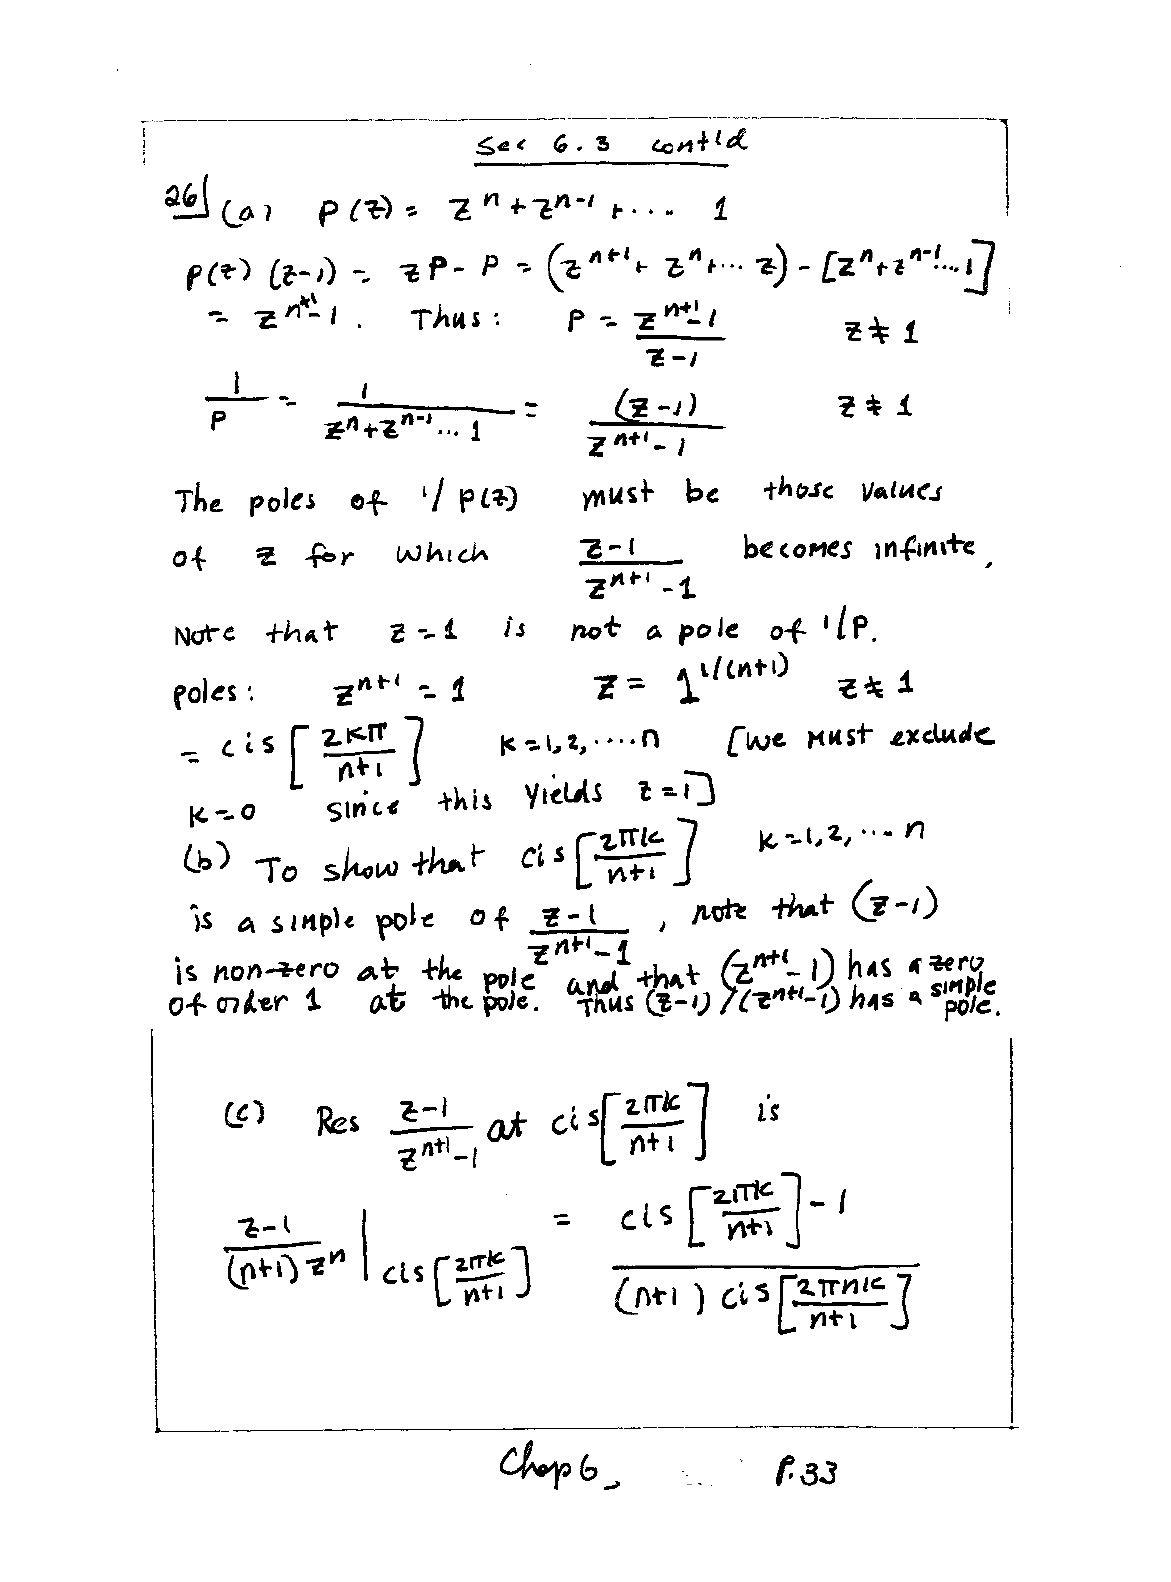 Sec 6.3 cont'd
26 (a) P(z) = z^n + z^{n-1} + .... 1
P(z) (z-1) = zP - P = (z^{n+1} + z^n + ... z) - [z^n + z^{n-1}... 1]
= z^{n+1} - 1. Thus: P = \frac{z^{n+1} - 1}{z-1} z ≠ 1
\frac{1}{P} = \frac{1}{z^n + z^{n-1} ... 1} = \frac{(z-1)}{z^{n+1} - 1} z ≠ 1
The poles of 1/P(z) must be those values
of z for which \frac{z-1}{z^{n+1} - 1} becomes infinite,
Note that z = 1 is not a pole of 1/P.
poles: z^{n+1} = 1 z = 1^{1/(n+1)} z ≠ 1
= cis [\frac{2kπ}{n+1}] k = 1, 2, .... n [we must exclude
k = 0 since this yields z = 1]
(b) To show that cis [\frac{2πk}{n+1}] k = 1, 2, ... n
is a simple pole of \frac{z-1}{z^{n+1} - 1}, note that (z-1)
is non-zero at the pole and that (z^{n+1} - 1) has a zero
of order 1 at the pole. Thus (z-1)/(z^{n+1} - 1) has a simple pole.
(c) Res \frac{z-1}{z^{n+1} - 1} at cis [\frac{2πk}{n+1}] is
\frac{z-1}{(n+1) z^n} |_{cis [\frac{2πk}{n+1}]} = \frac{cis [\frac{2πk}{n+1}] - 1}{(n+1) cis [\frac{2πnk}{n+1}]}
Chap 6, P. 33